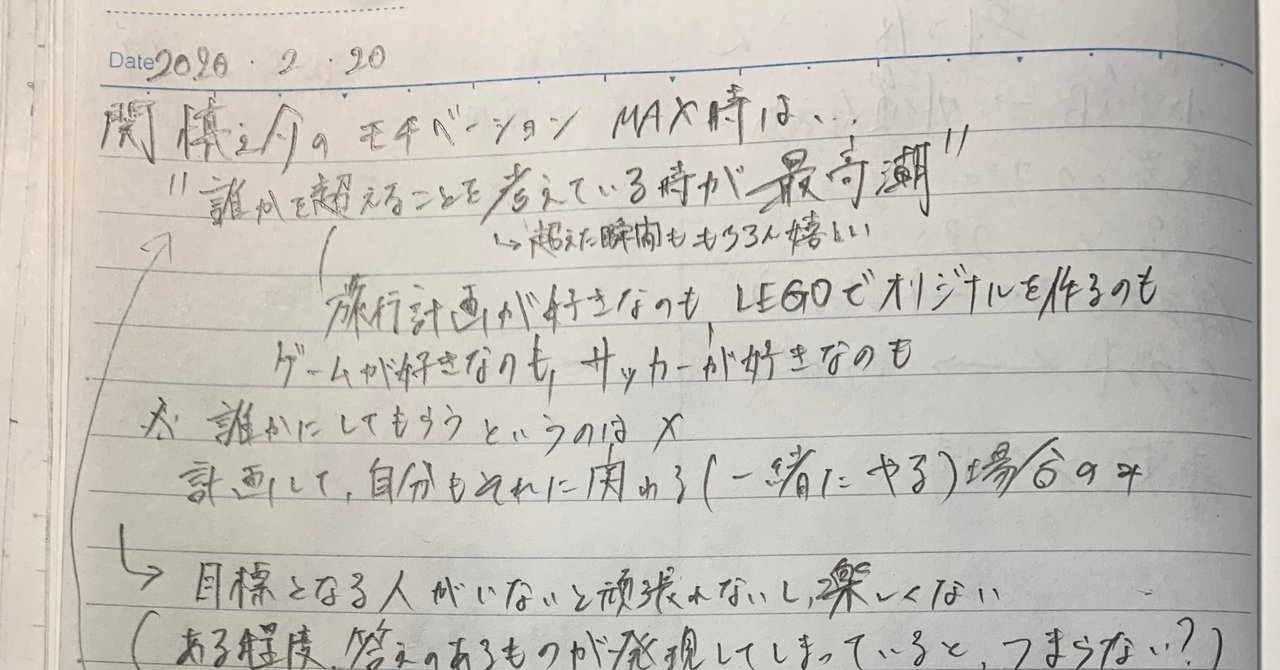 Date 2020・2・20
関 慎之介のモチベーション MAX時は...
"誰かを超えることを考えている時が最高潮"
↳超えた瞬間ももちろん嬉しい
旅行計画が好きなのも LEGOでオリジナルを作るのも
ゲームが好きなのも, サッカーが好きなのも
誰かにしてもらうというのは ×
計画して、自分もそれに関われる(一緒にやる)場合のみ
↳ 目標となる人がいないと頑張れないし、楽しくない
(ある程度、答えのあるものが発現してしまっていると、つまらない?)